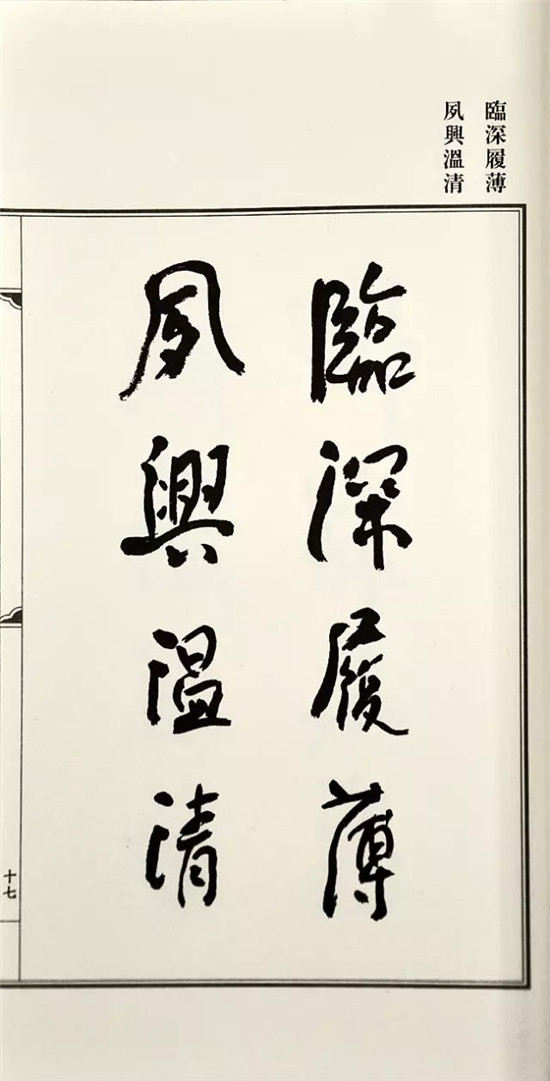 臨深履薄
夙興溫清
臨深履薄
夙興温清
十七